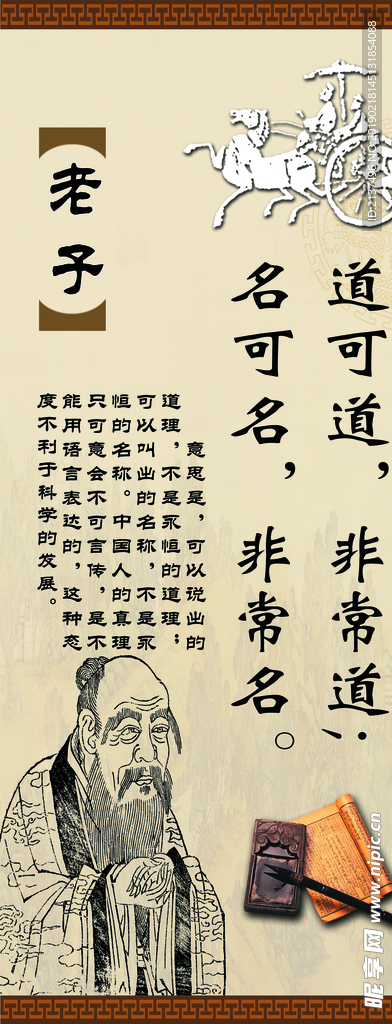 道可道，非常道；
名可名，非常名。
老子
意思是，可以说出的
道理，不是永恒的道理；
可以叫出的名称，不是永
恒的名称。中国人的真理
只可意会不可言传，是不
能用语言表达的，这种态
度不利于科学的发展。
昵享网 www.nipic.cn